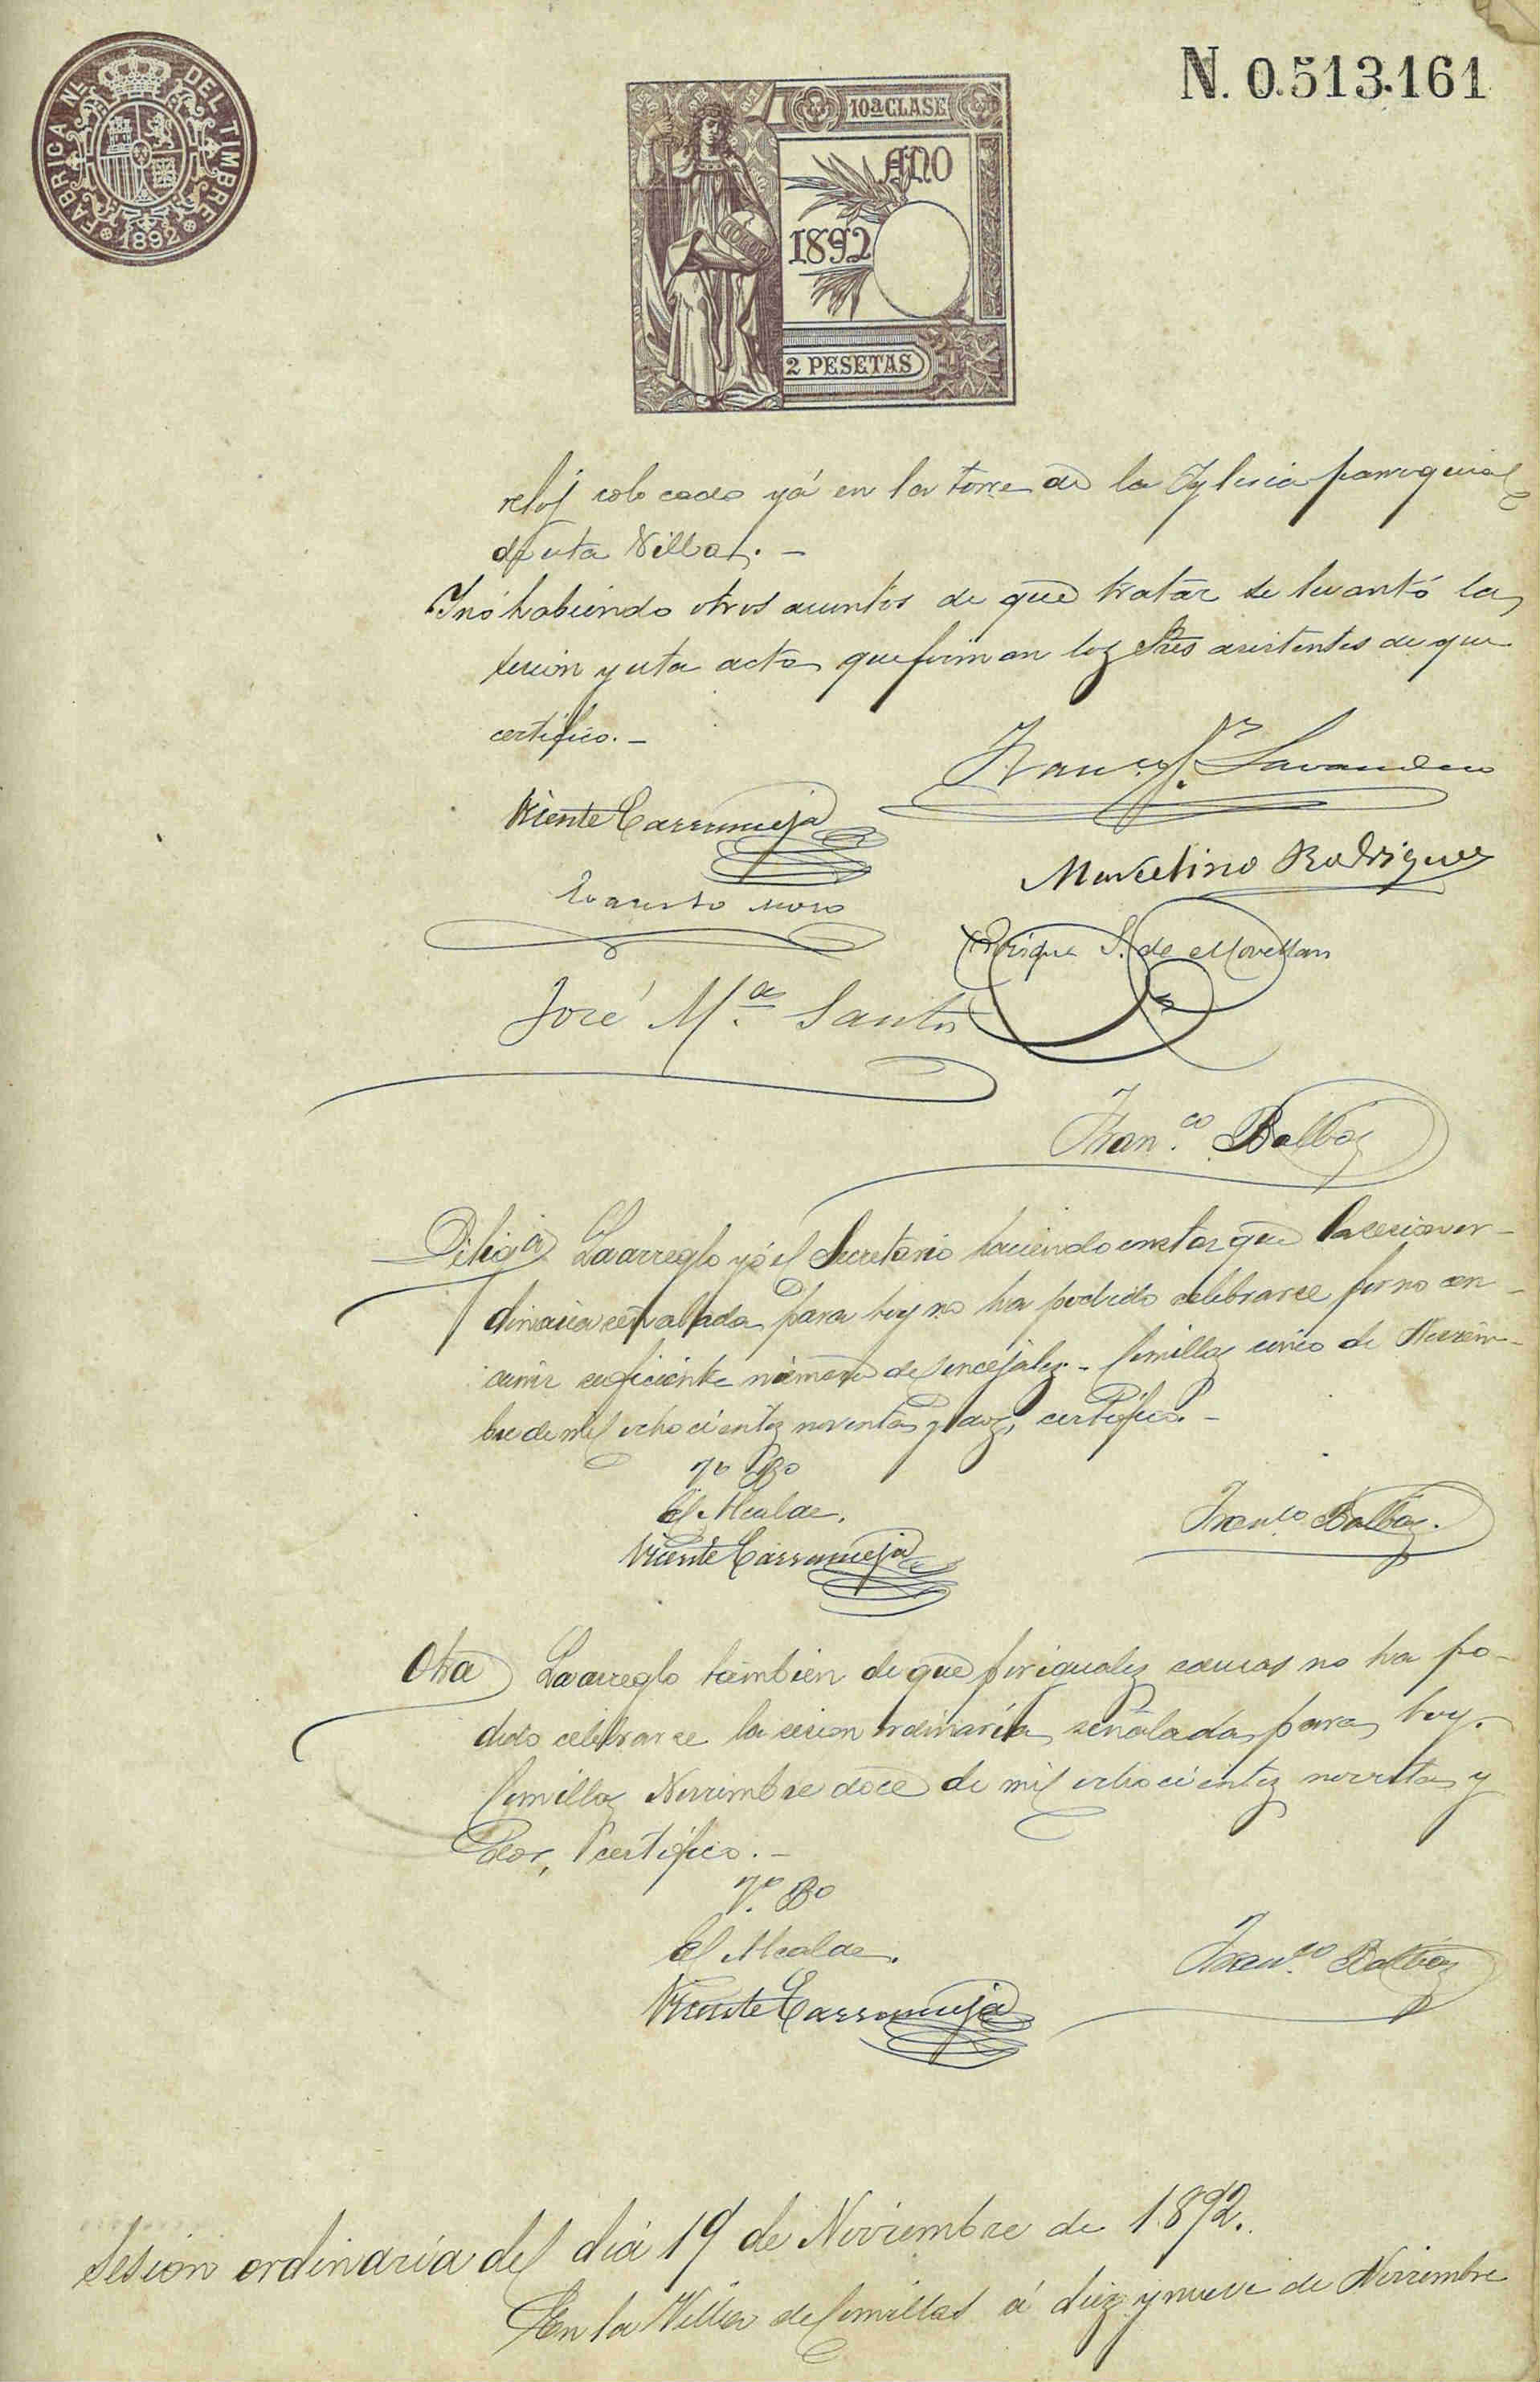 FABRICA NL. DEL TIMBRE
1892
N. 0.513.161
10ª CLASE
AÑO
1892
2 PESETAS
reloj colocado yá en la torre de la Yglesia parroquial
de esta Villa. -
Y nó habiendo otros asuntos de que tratar se levantó la
sesion y esta acta que firman los Sres asistentes de que
certifico. -
Vicente Carranceja
Marcelino Rodriguez
Enrique S. de Movellan
José Mª Santos
Franco Balbas
Diliga La arreglo yó el Secretario haciendo constar que la sesion or-
dinaria señalada para hoy no ha podido celebrarse por no con-
currir suficiente número de Concejales. - Comillas cinco de Noviem-
bre de mil ochocientos noventa y dos, certifico. -
Vo Bo
El Alcalde.
Vicente Carranceja
Franco Balbas.
Otra La arreglo tambien de que por iguales causas no ha po-
dido celebrarse la sesion ordinaria señalada para hoy.
Comillas Noviembre doce de mil ochocientos noventa y
dos, certifico. -
Vo Bo
El Alcalde.
Vicente Carranceja
Franco Balbas
Sesion ordinaria del dia 19 de Noviembre de 1892.
En la Villa de Comillas á diez y nueve de Noviembre